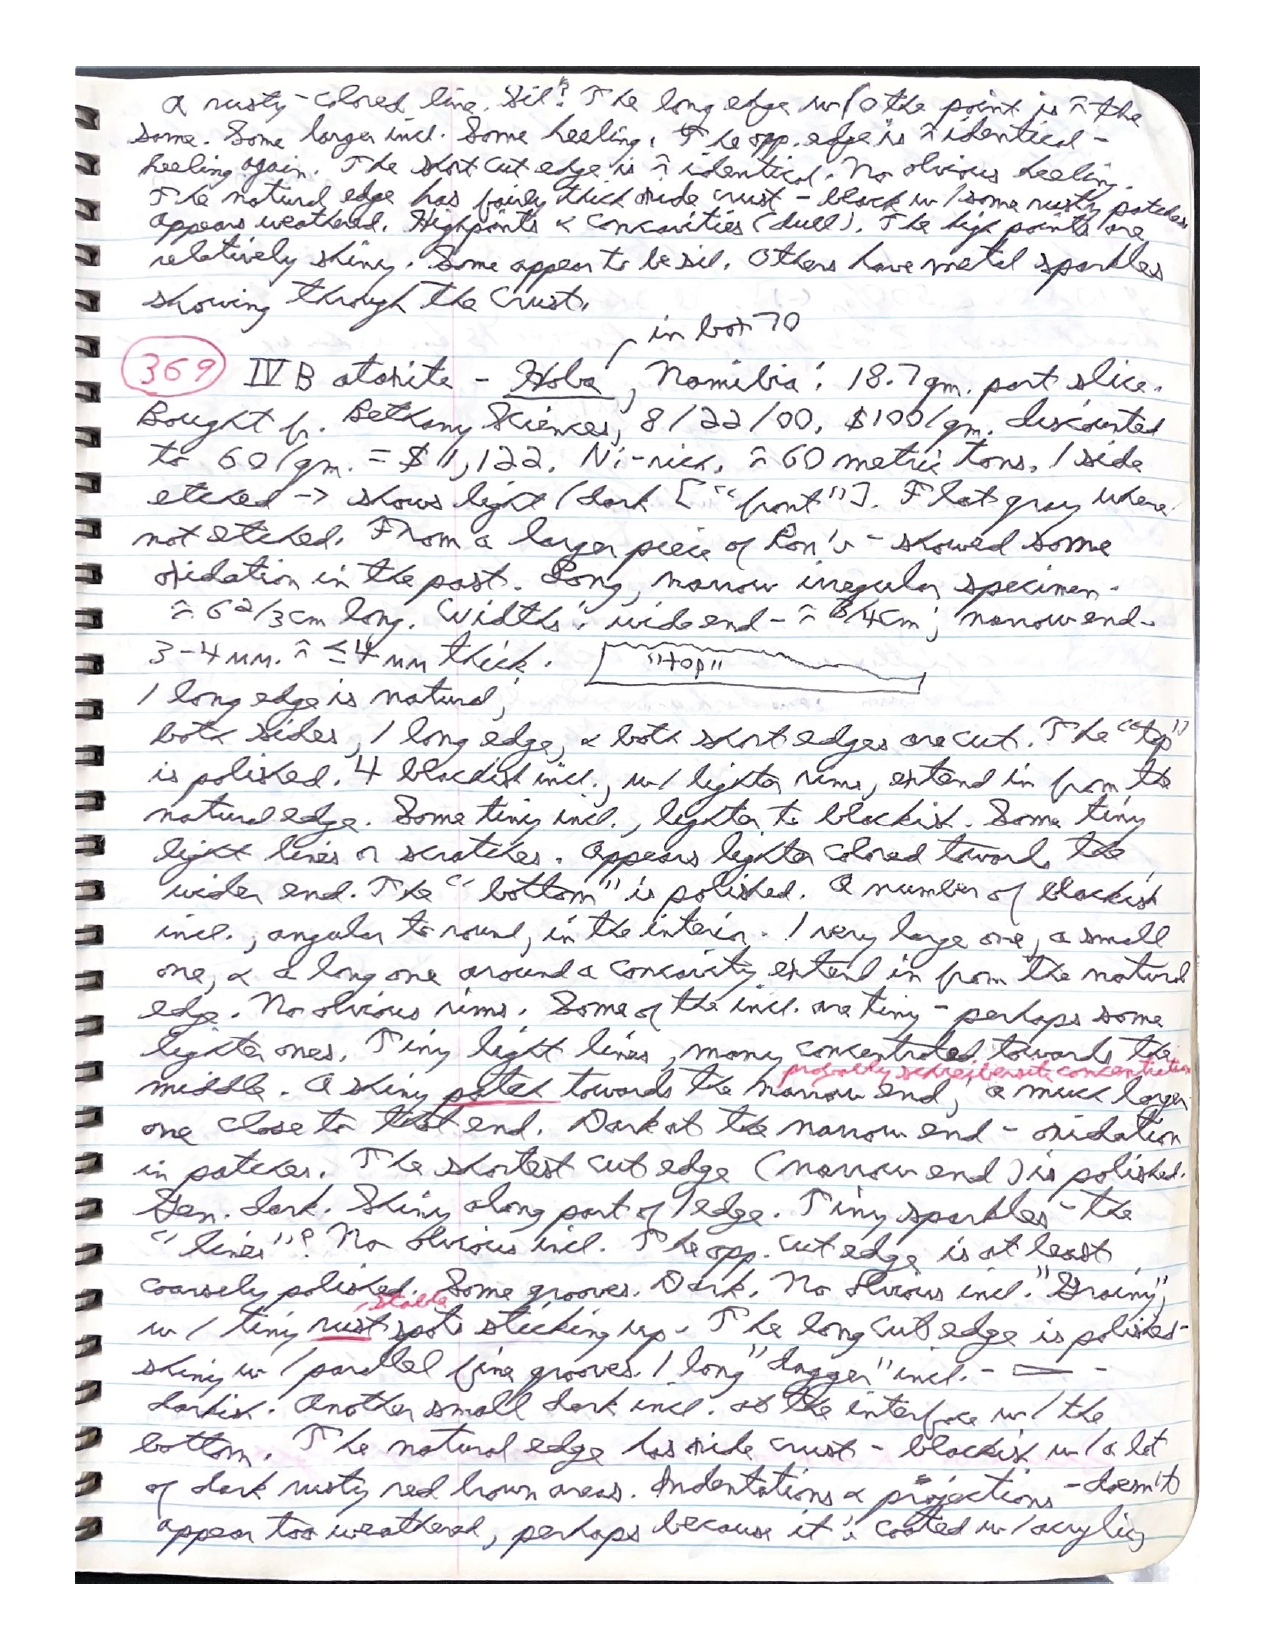 a rusty-colored line. Sil? The long edge w/o the point is ≈ the
same. Some larger incl. Some heeling. The opp. edge is ≈ identical -
heeling again. The short cut edge is ≈ identical. No obvious heeling.
The natural edge has fairly thick oxide crust - black w/ some rusty patches
appears weathered. Highpoints & concavities (dull). The high points are
relatively shiny. Some appear to be sil. Others have metal sparkles
showing through the crust.
in box 70
369 IVB ataxite - Hoba, Namibia: 18.7gm. part slice.
Bought fr. Bethany Sciences, 8/22/00, $100/gm. discounted
to 60/gm. = $1,122. Ni-rich, ≈ 60 metric tons. 1 side
etched -> shows light/dark ["front"]. Flat gray where
not etched. From a larger piece of Ron's - showed some
oxidation in the past. Long, narrow irregular specimen.
≈ 6 2/3 cm long. Widths: wide end - ≈ 3/4cm; narrow end -
3-4 mm. ≈ ≤4mm thick. "top"
1 long edge is natural;
both sides, 1 long edge, & both short edges are cut. The "top"
is polished. 4 blackish incl., w/ lighter rims, extend in from the
natural edge. Some tiny incl., lighter to blackish. Some tiny
light lines or scratches. Appears lighter colored towards the
wider end. The "bottom" is polished. A number of blackish
incl., angular to round, in the interior. 1 very large one, a small
one, & a long one around a concavity extend in from the natural
edge. No obvious rims. Some of the incl. are tiny - perhaps some
lighter ones. Tiny light lines, many concentrated towards the
probably schreibersite concentration
middle. A shiny patch towards the narrow end, a much larger
one close to that end. Dark at the narrow end - oxidation
in patches. The shortest cut edge (narrow end) is polished.
Gen. dark. Shiny along part of 1 edge. Tiny sparkles - the
"lines"? No obvious incl. The opp. cut edge is at least
coarsely polished. Some grooves. Dark. No obvious incl. "Grainy",
stable
w/ tiny rust spots sticking up. The long cut edge is polished -
shiny w/ parallel fine grooves. 1 long "dagger" incl. - -
darkish. Another small dark incl. at the interface w/ the
bottom. The natural edge has oxide crust - blackish w/ a lot
of dark rusty red brown areas. Indentations & projections - doesn't
appear too weathered, perhaps because it's coated w/ acrylic